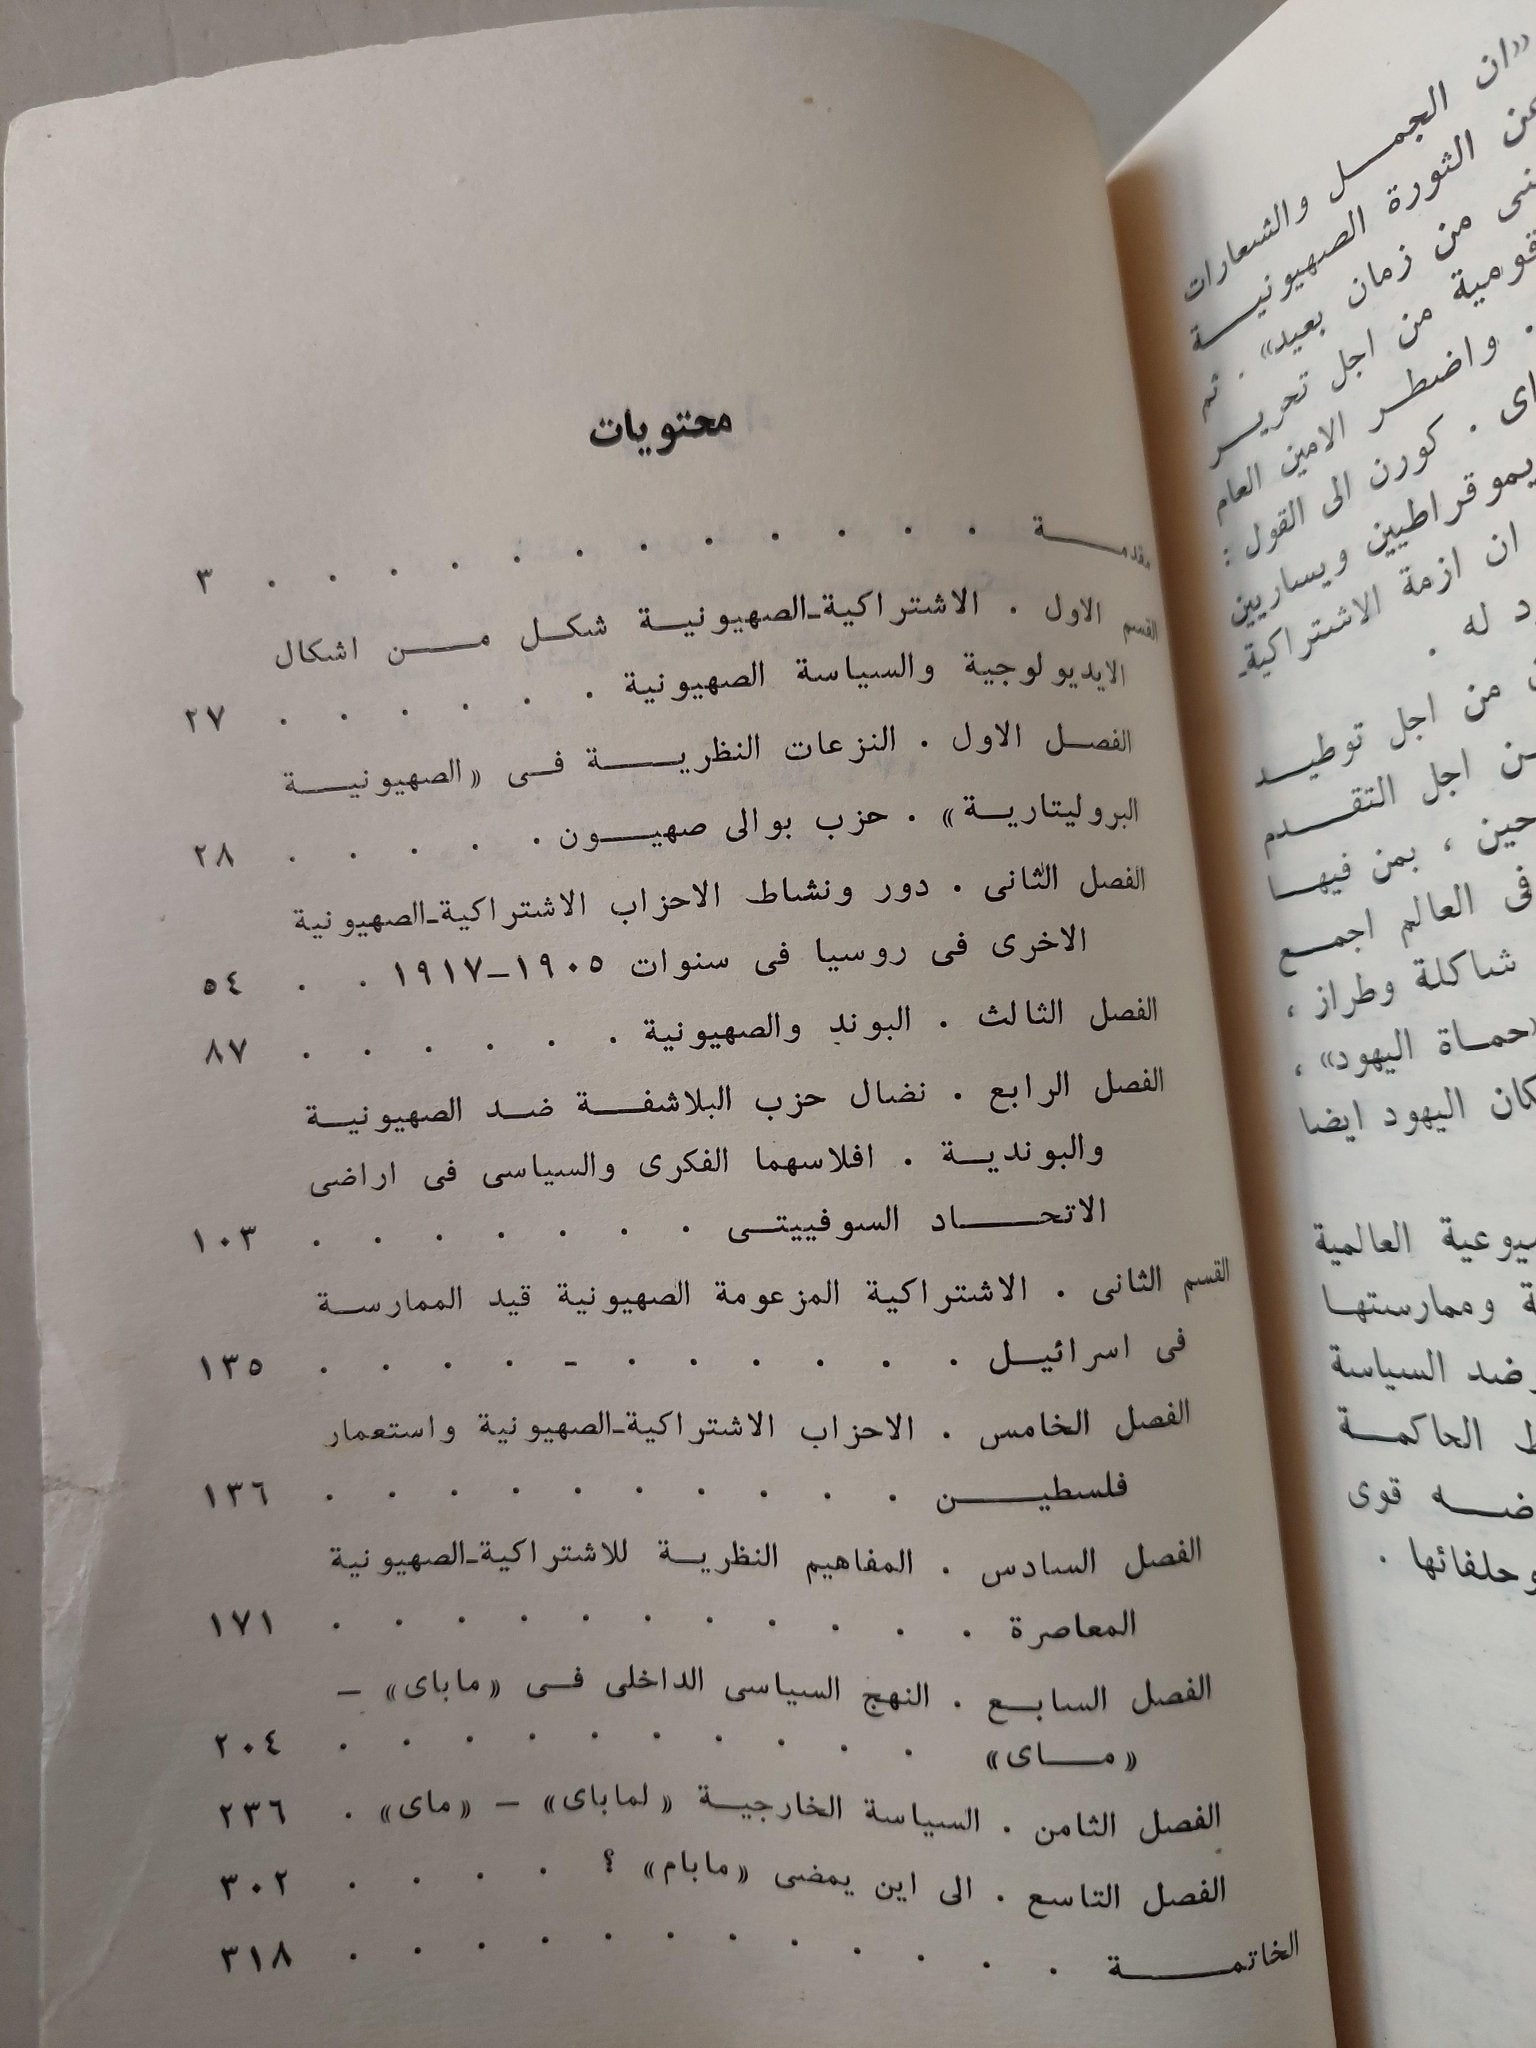 محتويات
مقدمـــة . . . . . . . . . . . . ٣
القسم الاول . الاشتراكية-الصهيونية شكل من اشكال
الايديولوجية والسياسة الصهيونية . . . . . . ٢٧
الفصل الاول . النزعات النظرية فى «الصهيونية
البروليتارية» . حزب بوالى صهيون . . . . . ٢٨
الفصل الثانى . دور ونشاط الاحزاب الاشتراكية-الصهيونية
الاخرى فى روسيا فى سنوات ١٩٠٥-١٩١٧ . . ٥٤
الفصل الثالث . البوند والصهيونية . . . . . . ٨٧
الفصل الرابع . نضال حزب البلاشفة ضد الصهيونية
والبوندية . افلاسهما الفكرى والسياسى فى اراضى
الاتحاد السوفييتى . . . . . . . ١٠٣
القسم الثانى . الاشتراكية المزعومة الصهيونية قيد الممارسة
فى اسرائيل . . . . . . - . . . . ١٣٥
الفصل الخامس . الاحزاب الاشتراكية-الصهيونية واستعمار
فلسطين . . . . . . . . . . ١٣٦
الفصل السادس . المفاهيم النظرية للاشتراكية-الصهيونية
المعاصرة . . . . . . . . . . . ١٧١
الفصل السابع . النهج السياسى الداخلى فى «ماباى» –
«ماى» . . . . . . . . . . ٢٠٤
الفصل الثامن . السياسة الخارجية «لماباى» – «ماى» . ٢٣٦
الفصل التاسع . الى اين يمضى «مابام» ؟ . . . . ٣٠٢
الخاتمة . . . . . . . . . . . . ٣١٨
«ان الجمل والشعارات
الثورة الصهيونية
من زمان بعيد» . ثم
قومية من اجل تحرير
. واضطر الامين العام
كورن الى القول :
ويساريين
ان ازمة الاشتراكية-
له .
من اجل توطيد
اجل التقدم
، بمن فيها
فى العالم اجمع
شاكلة وطراز ،
«حماة اليهود» ،
اليهود ايضا
العالمية
وممارستها
السياسة
الحاكمة
قوى
وحلفائها .